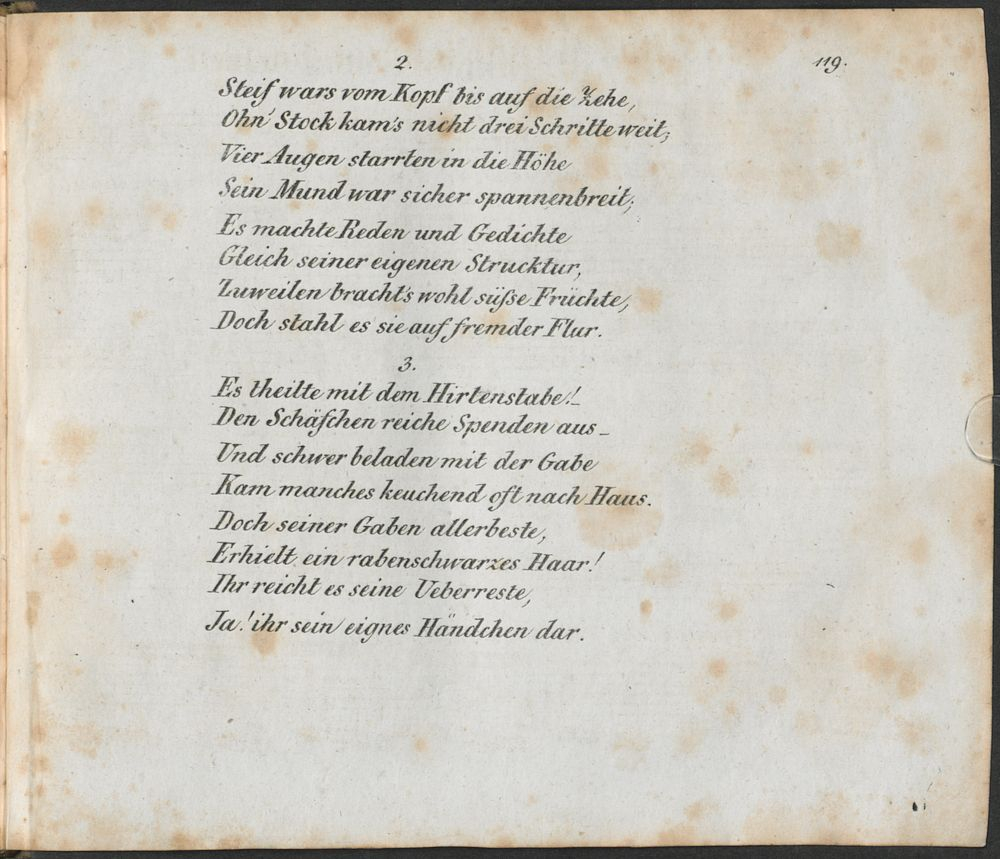 119.
2.
Steif wars vom Kopf bis auf die Zehe,
Ohn' Stock kam's nicht drei Schritte weit;
Vier Augen starrten in die Höhe
Sein Mund war sicher spannenbreit;
Es machte Reden und Gedichte
Gleich seiner eigenen Strucktur,
Zuweilen bracht's wohl süſse Früchte,
Doch stahl es sie auf fremder Flur.
3.
Es theilte mit dem Hirtenstabe! _
Den Schäfchen reiche Spenden aus _
Und schwer beladen mit der Gabe
Kam manches keuchend oft nach Haus.
Doch seiner Gaben allerbeste,
Erhielt ein rabenschwarzes Haar!
Ihr reicht es seine Ueberreste,
Ja! ihr sein eignes Händchen dar.